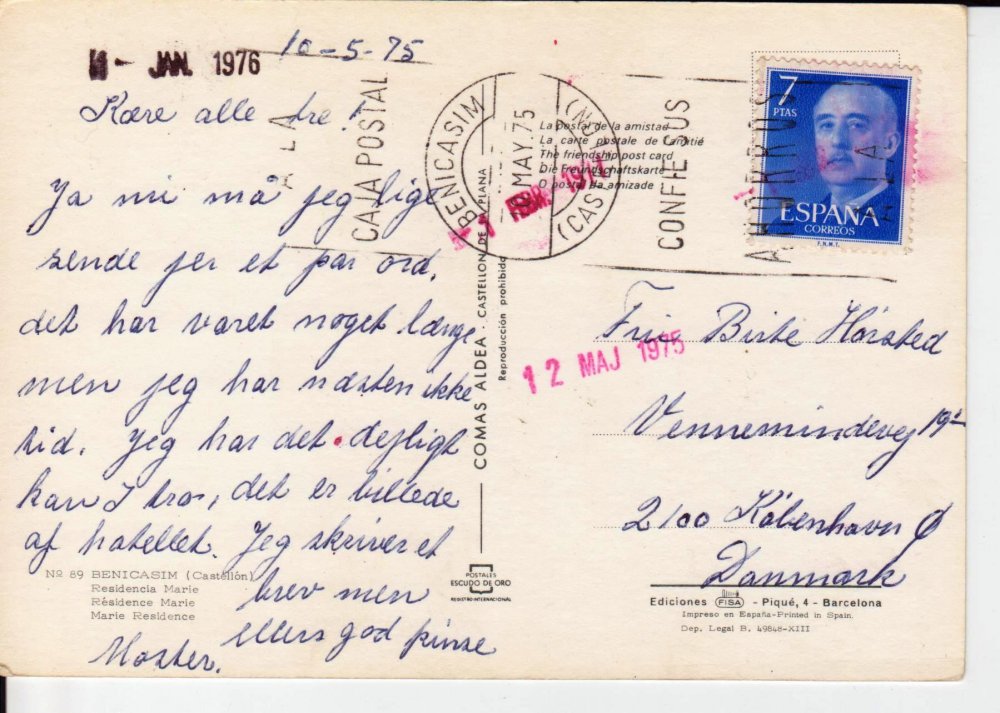 1 - JAN. 1976
10-5-75
Kære alle tre!
Ja nu må jeg lige
sende jer et par ord,
det har varet noget længe
men jeg har næsten ikke
tid. Jeg har det dejligt
kan I tro, det er billede
af hotellet. Jeg skriver et
brev men
ellers god pinse
Moster.
Nº 89 BENICASIM (Castellón)
Residencia Marie
Résidence Marie
Marie Residence
A LA
CAJA POSTAL
BENICASIM
MAY.75
(CASTELLON)
CONFIE SUS
AHORROS
La postal de la amistad
La carte postale de l'amitié
The friendship post card
Die Freundschaftskarte
O postal da amizade
7
PTAS
ESPAÑA
CORREOS
F.N.M.T.
COMAS ALDEA - CASTELLON DE LA PLANA
Reproducción prohibida
12 MAJ 1975
Birte Hörsted
Vennemindevej
2100 København Ø
Danmark
POSTALES
ESCUDO DE ORO
REGISTRO INTERNACIONAL
Ediciones FISA - Piqué, 4 - Barcelona
Impreso en España-Printed in Spain.
Dep. Legal B. 49848-XIII